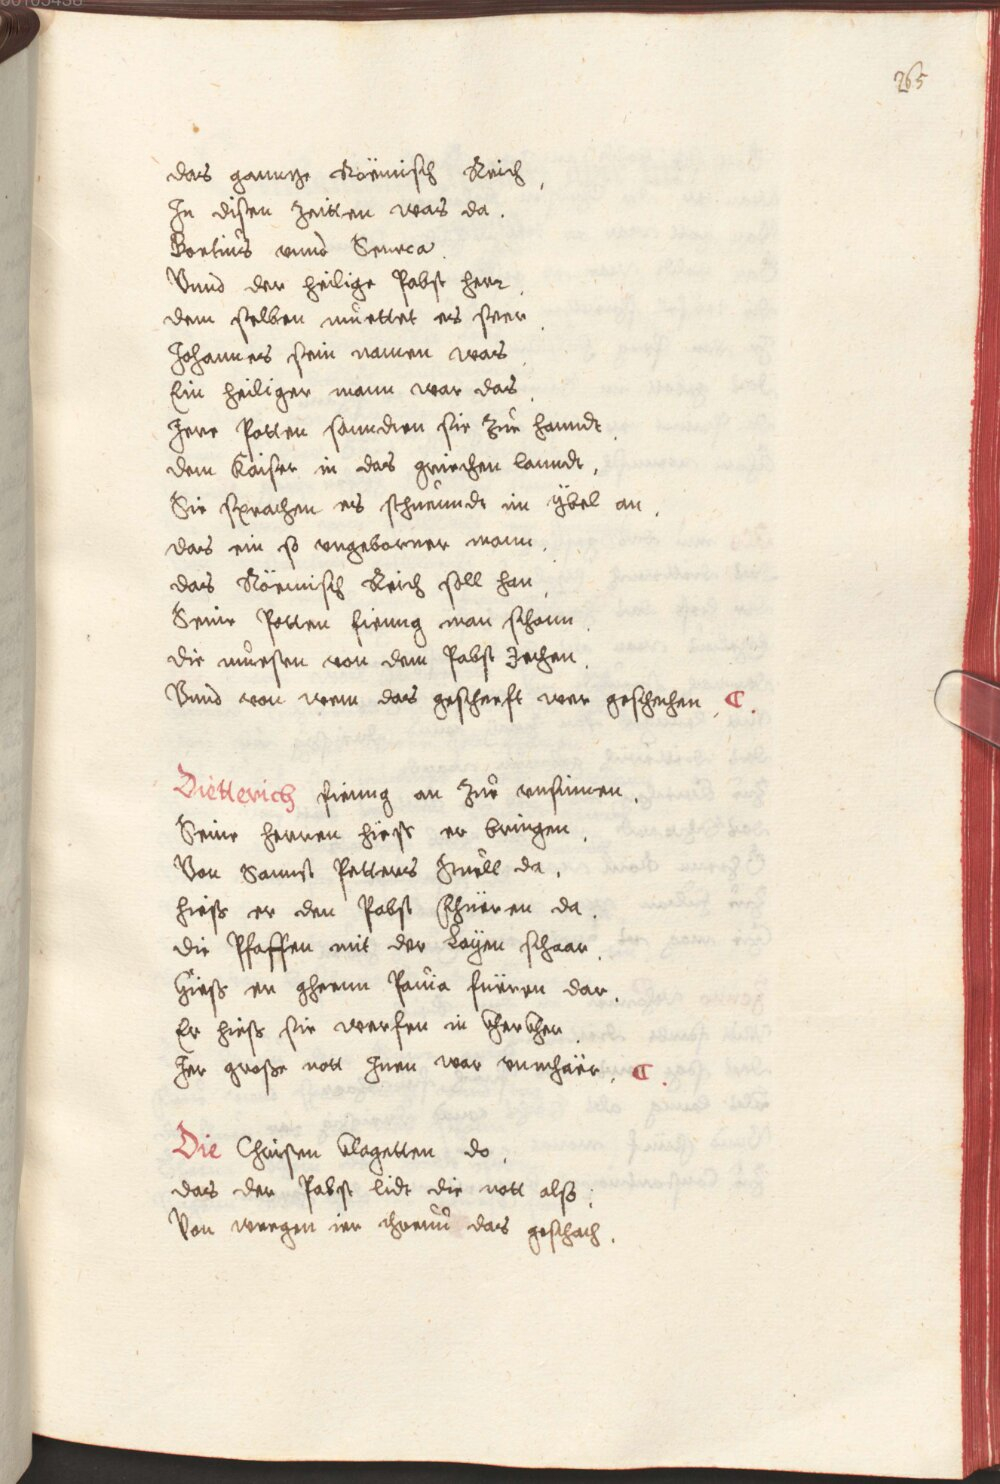 265
das ganntze Röemisch Reich,
In disen zeitten was da.
Boetius vnnd Seneca.
Vnnd der heilige Pabst herr.
dem selben muettet es seer.
Johannes sein namen was.
Ein heiliger mann war das.
Jere Potten sanndten sie zue hanndt.
dem Kaiser in das griechen lanndt,
Sie sprachen es stuenndt im ÿbel an.
das ein so vngeborner mann.
das Röemisch Reich soll han.
Seine Potten fienng man schonn.
die muesten von dem Pabst Jechen.
Vnnd von wem das gescheeft wer geschechen. C.
Dietterich fienng an zue vnsinnen.
Seine herren hiess er bringen.
Von Sannst Petters Stuell da,
hiess er den Pabst Phüeren da.
die Pfaffen mit der Layen schaar.
hiess er gheenn Pauia füeren dar.
Er hiess sie werfen in kherkher.
Jer grosse nott Jnen war vnmhäer. C.
Die Christen klagetten do.
das der Pabst lidt die nott alss.
Von weegen ier threuw das geschach.